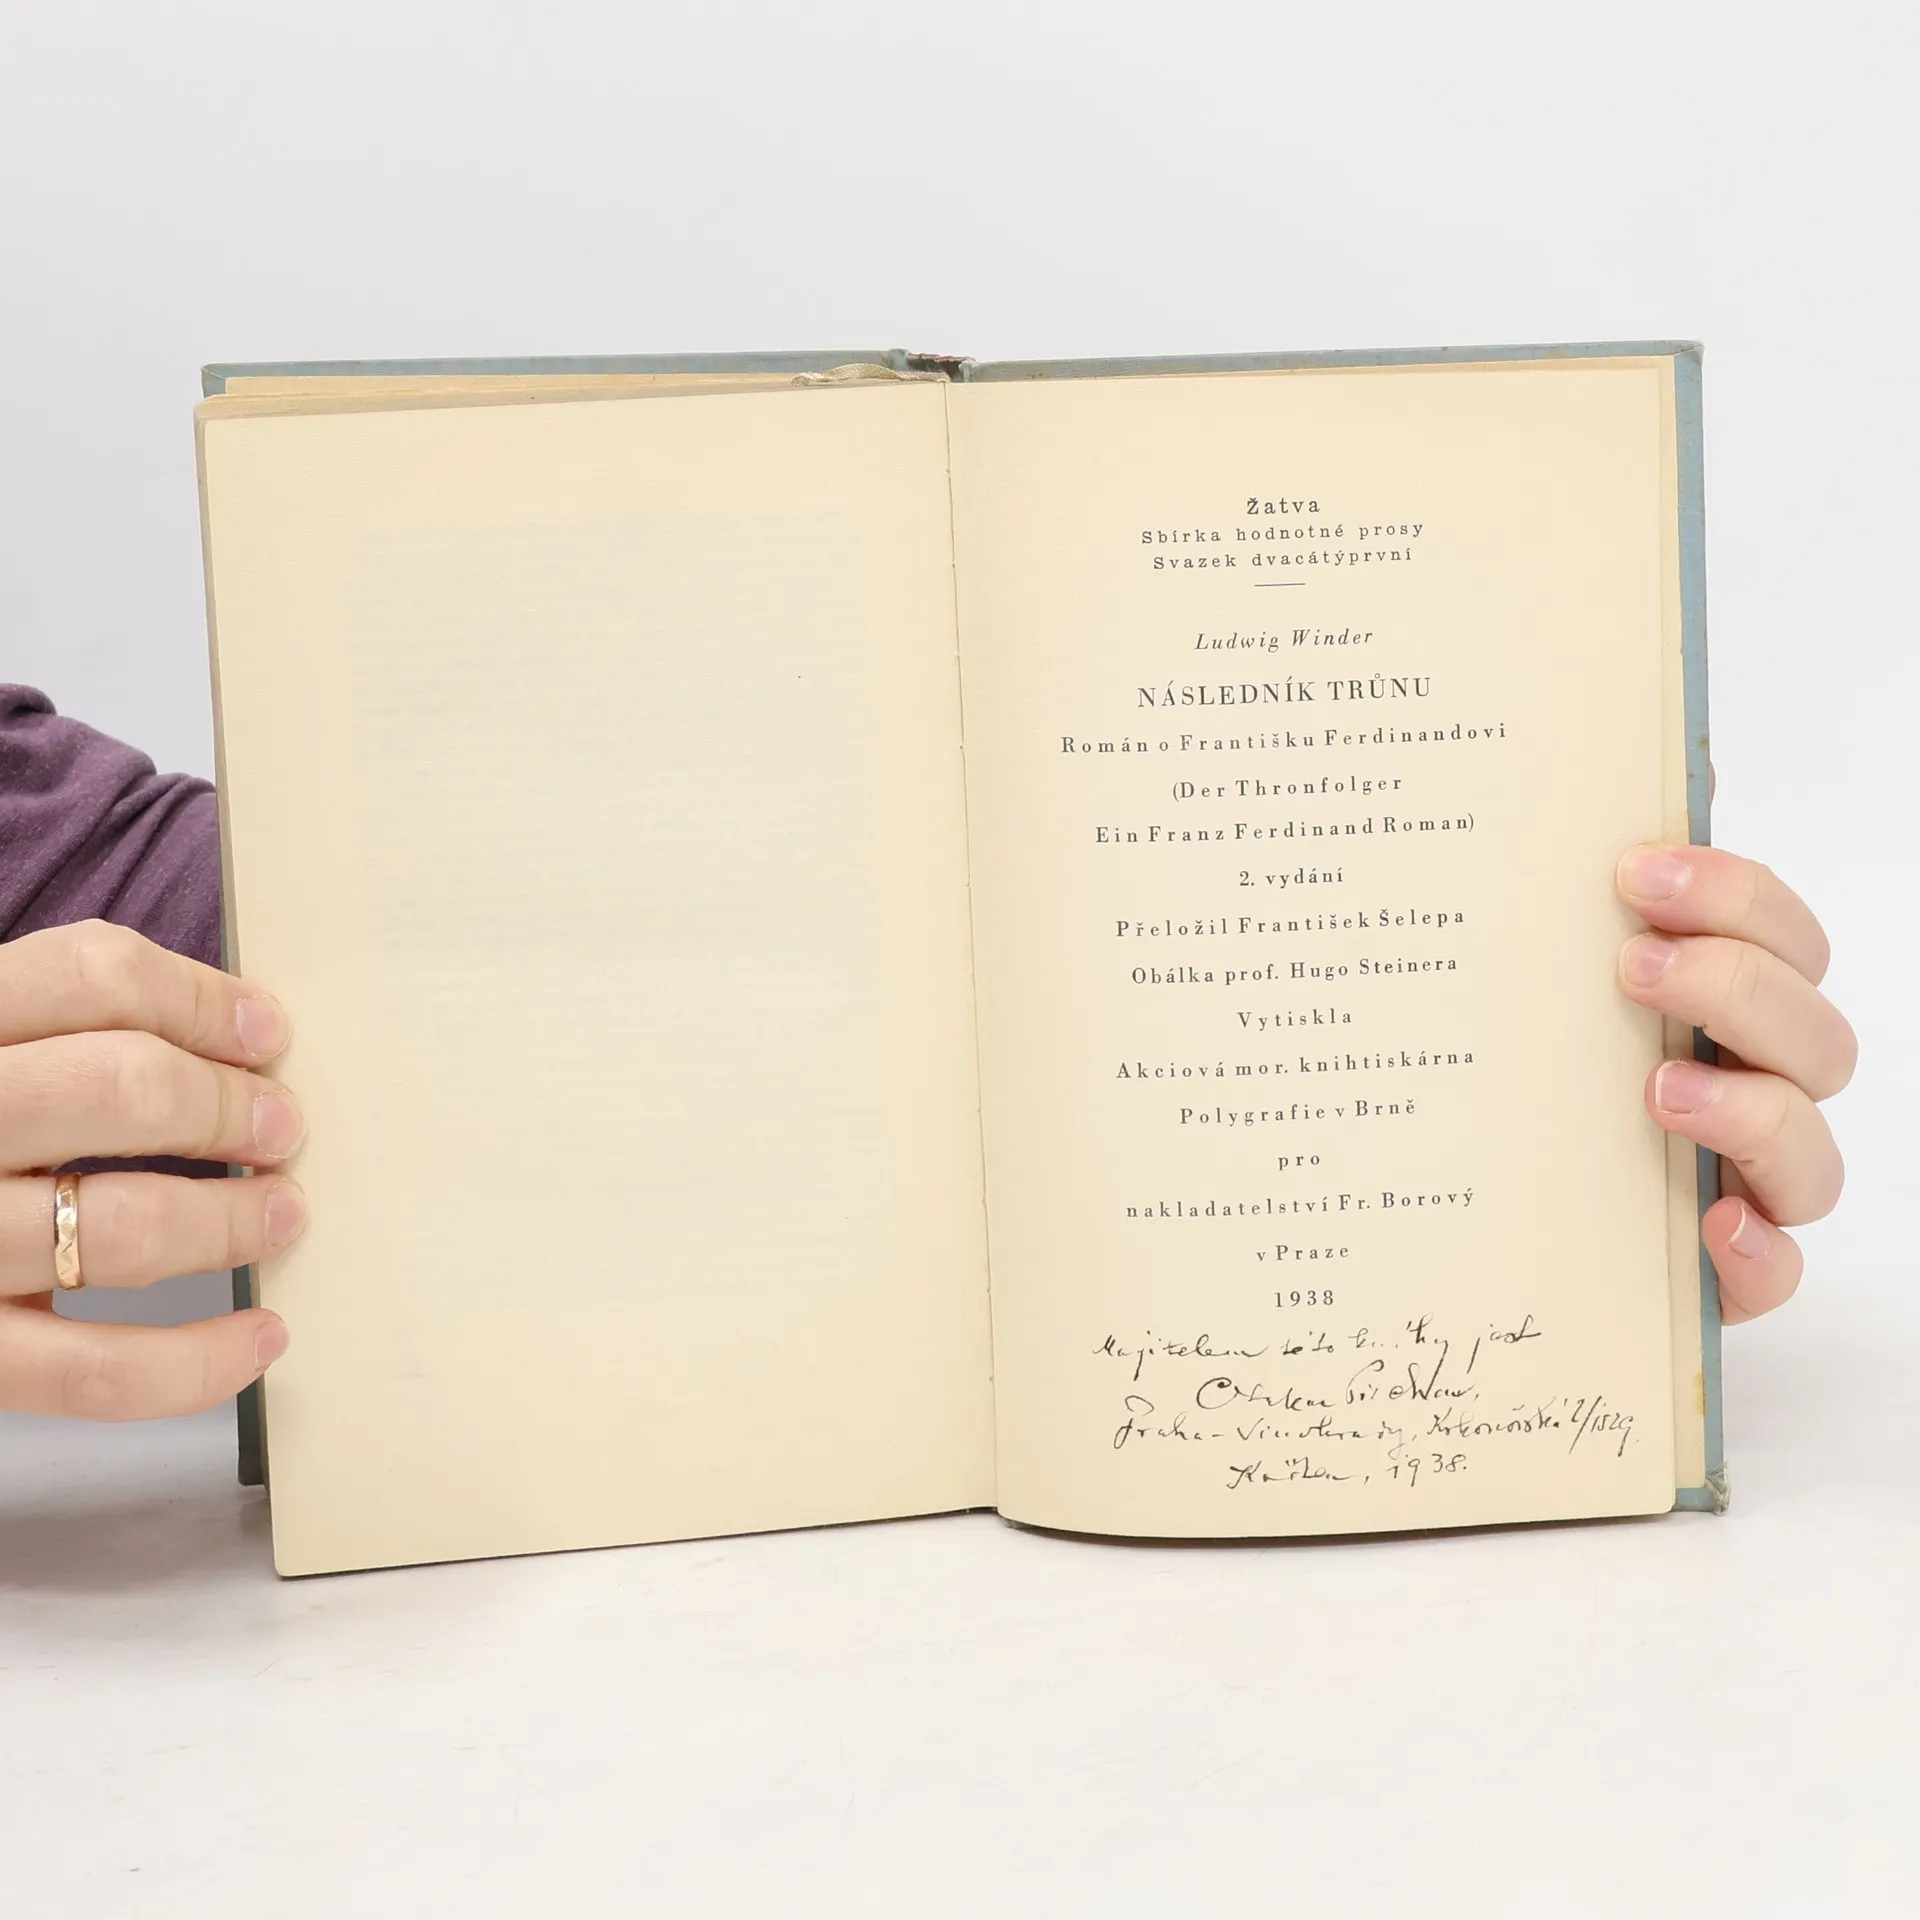 Žatva
Sbírka hodnotné prosy
Svazek dvacátýprvní
Ludwig Winder
NÁSLEDNÍK TRŮNU
Román o Františku Ferdinandovi
(Der Thronfolger
Ein Franz Ferdinand Roman)
2. vydání
Přeložil František Šelepa
Obálka prof. Hugo Steinera
Vytiskla
Akciová mor. knihtiskárna
Polygrafie v Brně
pro
nakladatelství Fr. Borový
v Praze
1938
Majitelem této knihy jest
Otakar
Praha - Vinohrady, Krkonošská
Květen, 1938.